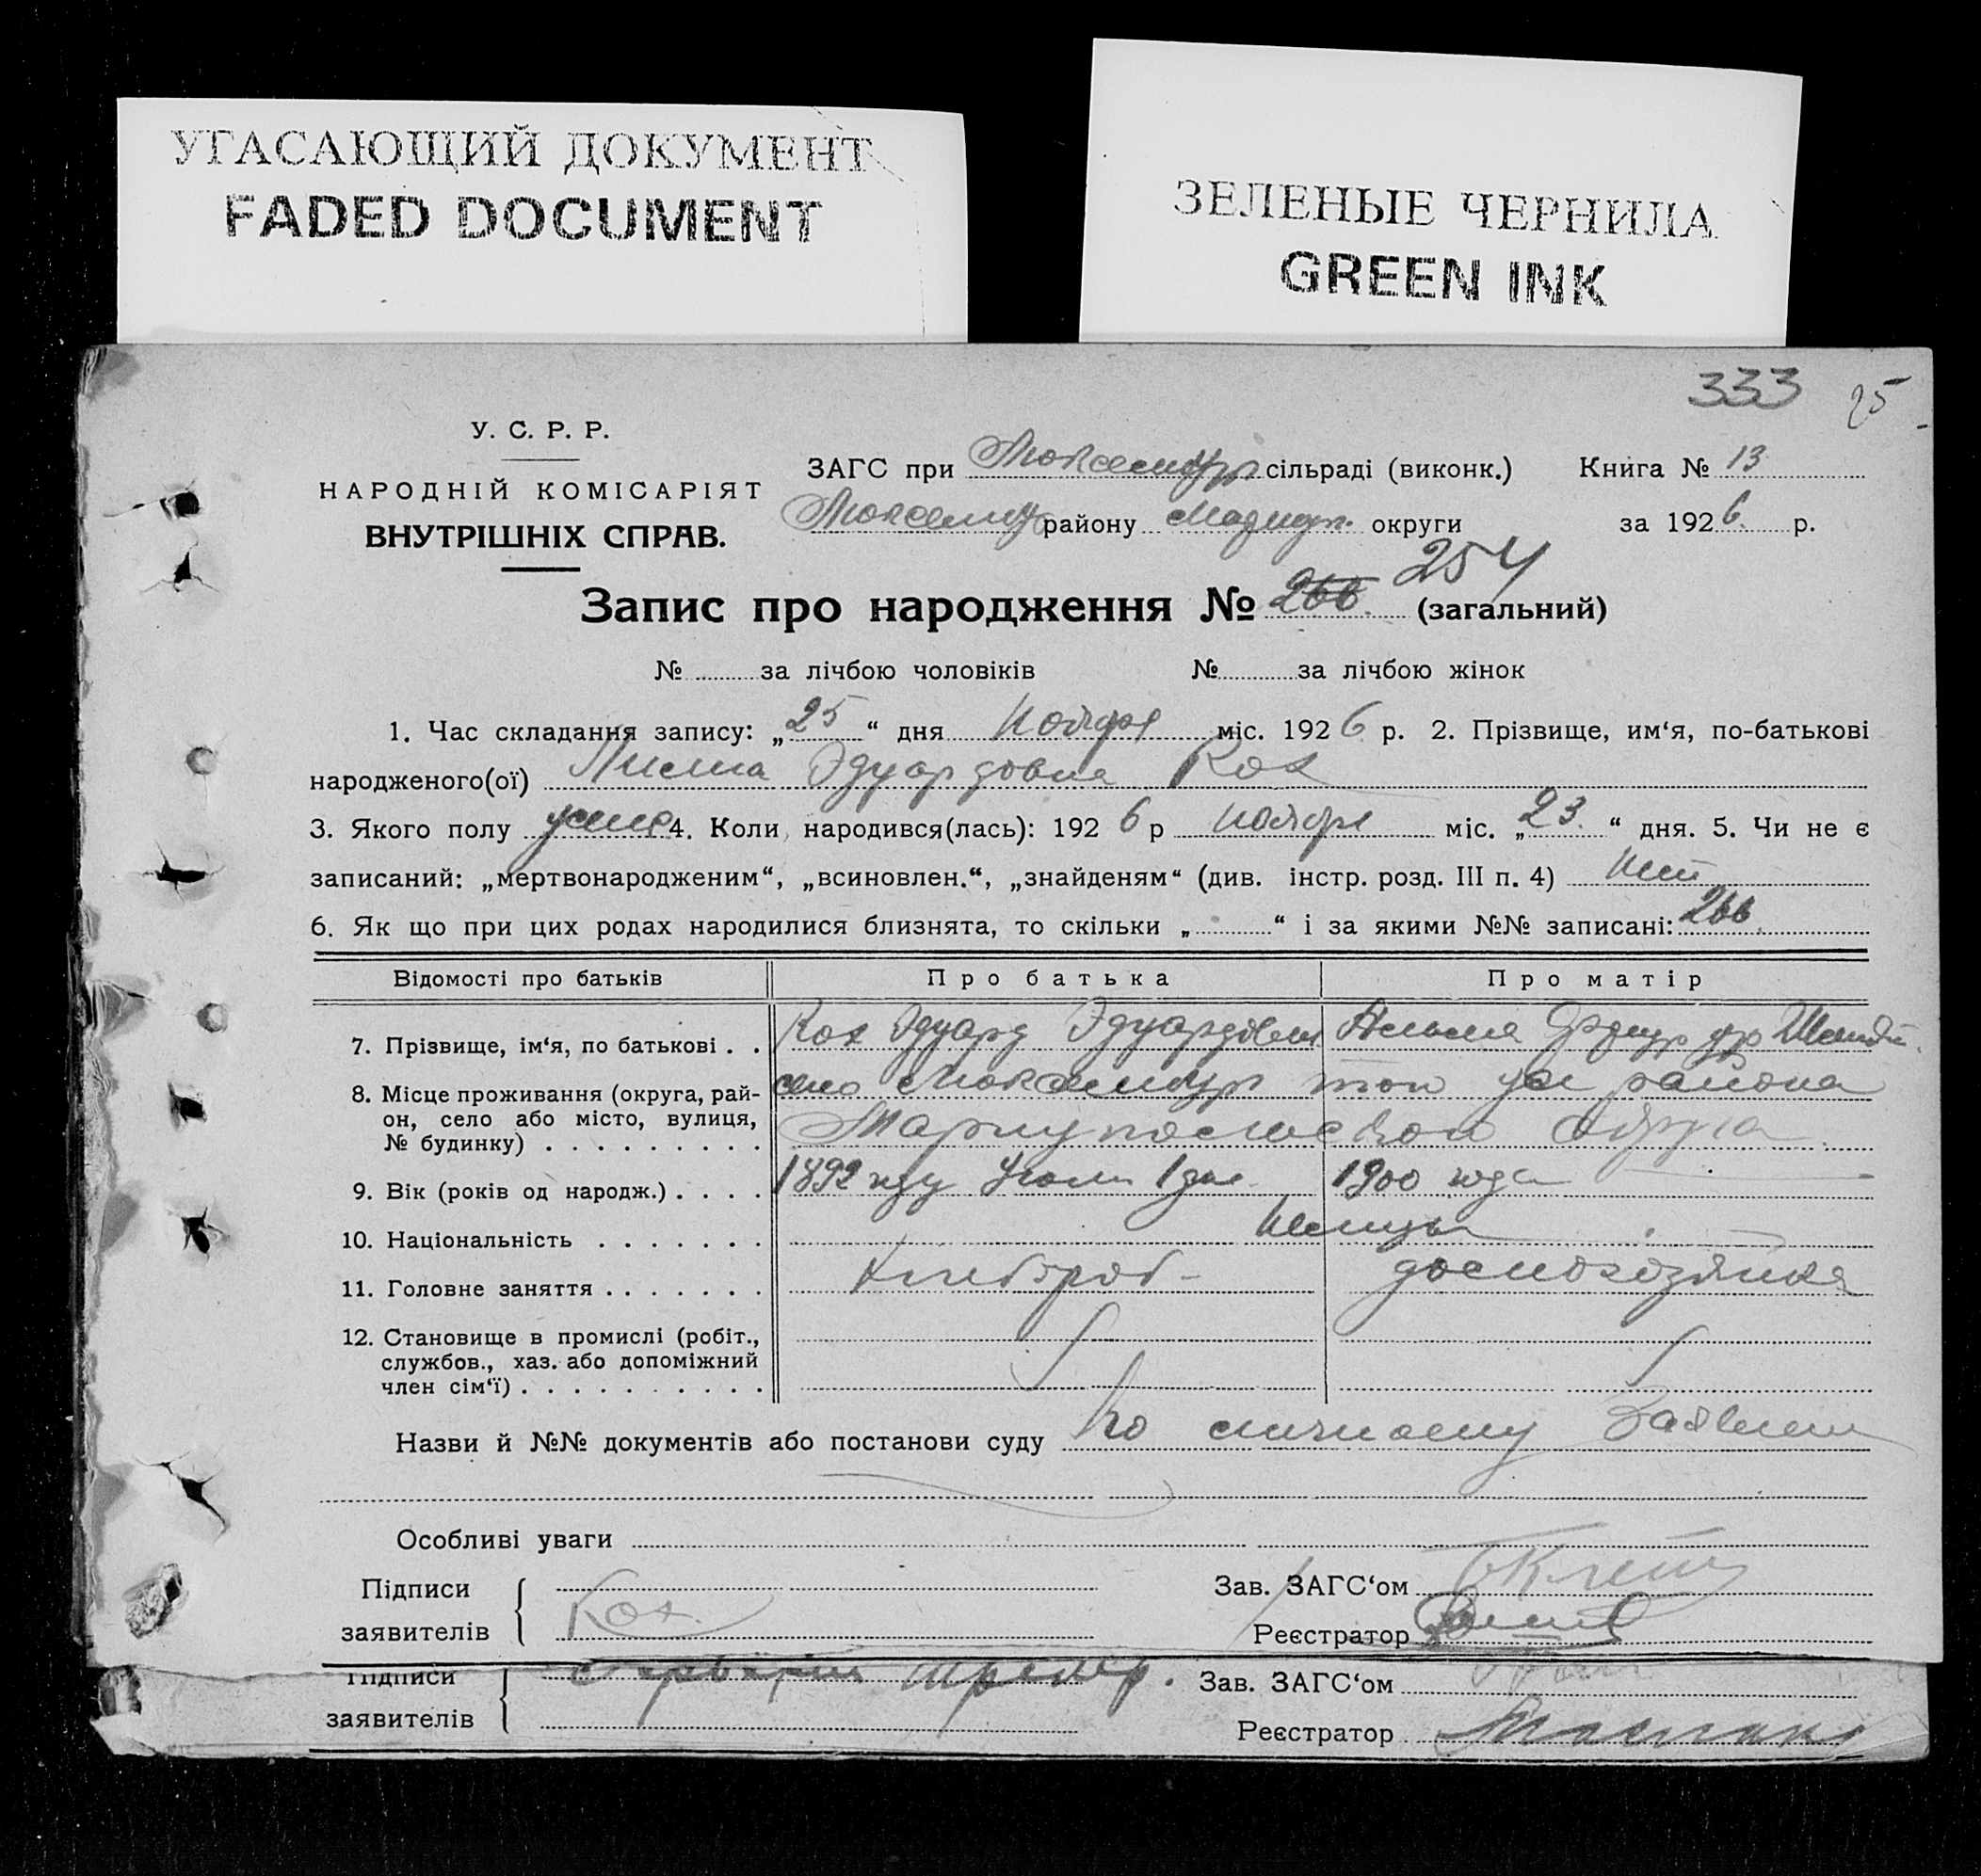 УГАСАЮЩИЙ ДОКУМЕНТ
FADED DOCUMENT
ЗЕЛЕНЫЕ ЧЕРНИЛА
GREEN INK
333 25
У. С. Р. Р.
НАРОДНІЙ КОМІСАРІЯТ
ВНУТРІШНІХ СПРАВ.
ЗАГС при сільраді (виконк.) Книга № 13
району округи за 1926 р.
254
Запис про народження № 266 (загальний)
№ за лічбою чоловіків № за лічбою жінок
1. Час складання запису: „25“ дня Ноября міс. 1926 р. 2. Прізвище, им‘я, по-батькові
народженого(ої) Эдуардовна Кох
3. Якого полу 4. Коли народився(лась): 1926 р ноября міс. „23.“ дня. 5. Чи не є
записаний: „мертвонародженим“, „всиновлен.“, „знайденям“ (див. інстр. розд. III п. 4) нет
6. Як що при цих родах народилися близнята, то скільки „ “ і за якими №№ записані: 266
Відомості про батьків Про батька Про матір
7. Прізвище, ім‘я, по батькові . . Кох Эдуард Эдуардович
8. Місце проживання (округа, рай- село района
он, село або місто, вулиця, Мариупольской округа
№ будинку) . . . . . . . . .
9. Вік (років од народж.) . . . . 1892 1900 года
10. Національність . . . . . . . Немцы
11. Головне заняття . . . . . . . Хлебороб- домохозяйка
12. Становище в промислі (робіт.,
службов., хаз. або допоміжний
член сім‘ї) . . . . . . . . . .
Назви й №№ документів або постанови суду По личному
Особливі уваги
Підписи Зав. ЗАГС‘ом
заявителів Кох. Реєстратор
Підписи Зав. ЗАГС‘ом
заявителів Реєстратор